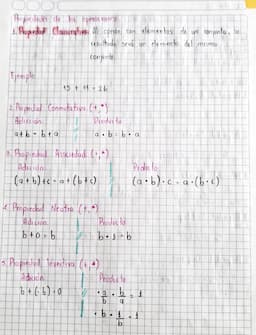 Propiedades de las operaciones
1. Propiedad Clausurativa: Al operar con elementos de un conjunto, el
resultado será un elemento del mismo
conjunto.
Ejemplo
15 + 11 = 26
2. Propiedad Conmutativa (+, *)
Adición Producto
a+b = b+a a · b = b · a
3. Propiedad Asociativa (+, *)
Adición Producto
(a+b)+c = a+(b+c) (a·b)·c = a·(b·c)
4. Propiedad Neutra (+, *)
Adición Producto
b+0=b b·1=b
5. Propiedad Inversa (+, *)
Adición Producto
b+(-b)=0 · a/b · b/a = 1
· b · 1/b = 1